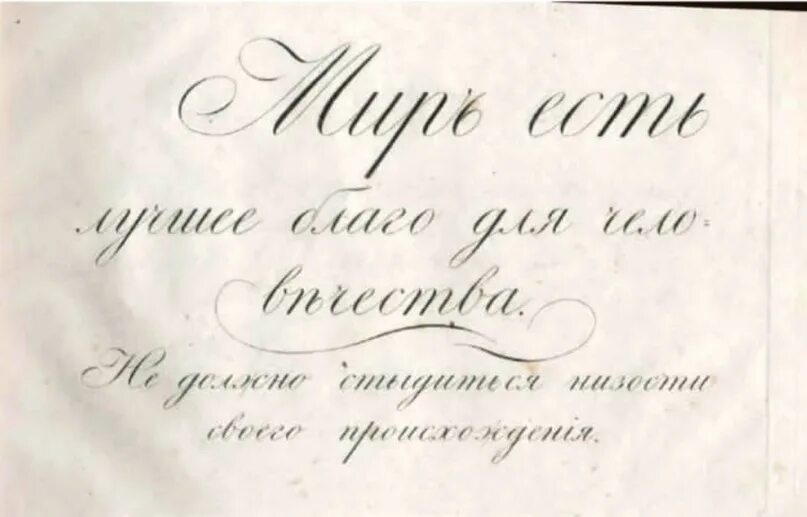 Миръ есть
лучшее благо для чело-
вѣчества.
Не должно стыдиться низости
своего происхожденія.